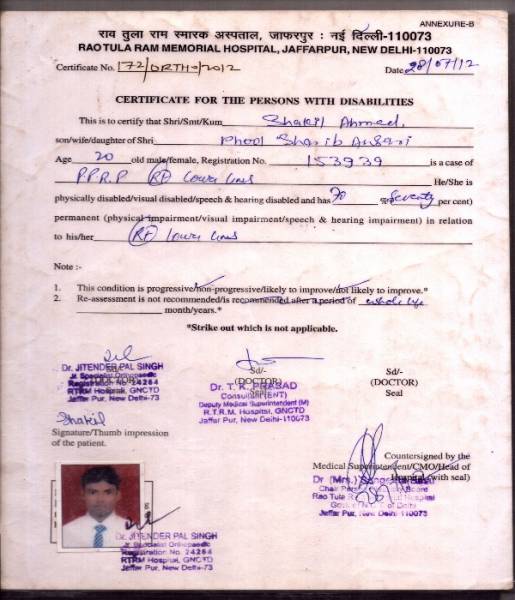 ANNEXURE-B
राव तुला राम स्मारक अस्पताल, जाफरपुर : नई दिल्ली-110073
RAO TULA RAM MEMORIAL HOSPITAL, JAFFARPUR, NEW DELHI-110073
Certificate No. 172/ORTHO/2012 Date 28/07/12
CERTIFICATE FOR THE PERSONS WITH DISABILITIES
This is to certify that Shri/Smt/Kum Shakil Ahmed,
son/wife/daughter of Shri Phool Sharib Ansari
Age 20 old male/female, Registration No. 153939 is a case of
P.P.R.P Rt lower limb He/She is
physically disabled/visual disabled/speech & hearing disabled and has 70 % Seventy per cent)
permanent (physical impairment/visual impairment/speech & hearing impairment) in relation
to his/her Rt lower limb
Note :-
1. This condition is progressive/non-progressive/likely to improve/not likely to improve.*
2. Re-assessment is not recommended/is recommended after a period of whole life
month/years.*
*Strike out which is not applicable.
Sd/- Sd/- Sd/-
(DOCTOR) (DOCTOR) (DOCTOR)
Seal Seal
Dr. JITENDER PAL SINGH
Jr. Specialist Orthopaedic
Registration No. 24264
RTRM Hospital, GNCTD
Jaffar Pur, New Delhi-73
Dr. T. K. PRASAD
Consultant (ENT)
Deputy Medical Superintendent (M)
R.T.R.M. Hospital, GNCTD
Jaffar Pur, New Delhi-110073
Shakil
Signature/Thumb impression
of the patient.
Countersigned by the
Medical Superintendent/CMO/Head of
Hospital (with seal)
Dr (Mrs.)
Rao Tula Hospital
Govt. of Delhi
Jaffar Pur, New Delhi-110073
Dr. JITENDER PAL SINGH
Jr. Specialist Orthopaedic
Registration No. 24264
RTRM Hospital, GNCTD
Jaffar Pur, New Delhi-73